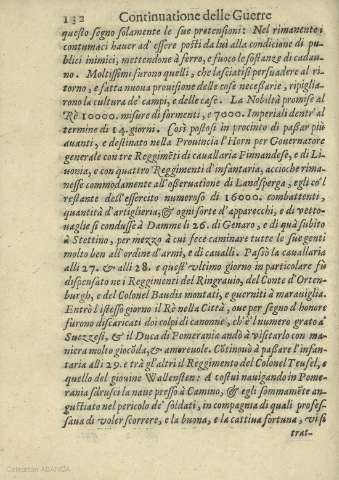 132 Continuatione delle Guerre
questo segno solamente le sue pretensioni: Nel rimanente i
contumaci hauer ad essere posti da lui alla condicione di pu-
blici inimici, mettendone à ferro, e fuoco le sostanze di cadau-
no. Moltissimi furono quelli, che lasciatisi persuadere al ri-
torno, e fatta nuoua prouisione delle cose necessarie, ripiglia-
rono la cultura de' campi, e delle case. La Nobiltà promise al
Rè 10000. misure di formenti, e 7000. Imperiali dentr' al
termine di 14. giorni. Così postosi in procinto di passar più
auanti, e destinato nella Prouincia l'Horn per Gouernatore
generale con tre Reggimẽti di cauallaria Finnandese, e di Li-
uonia, e con quattro Reggimenti d'infantaria, accioche rima-
nesse commodamente all'osseruatione di Landsperga, egli co'l
restante dell'essercito numeroso di 16000. combattenti,
quantità d'artiglieria, & ogni sorte d'apparecchi, e di vetto-
uaglie si condusse à Damme li 26. di Genaro, e di quà subito
à Stettino, per mezzo à cui fece caminare tutte le sue genti
molto ben all'ordine d'armi, e di caualli. Passò la cauallaria
alli 27. & alli 28. e quest' vltimo giorno in particolare fù
dispensato ne i Reggimenti del Ringrauio, del Conte d'Orten-
burgh, e del Colonel Baudis montati, e guerniti à marauiglia.
Entrò l'istesso giorno il Rè nella Città, oue per segno d'honore
furono discaricati doi colpi di cannone, ch'è'l numero grato a'
Suezzesi, & il Duca di Pomerania andò à visitarlo con ma-
niera molto giocõda, & amoreuole. Cõtinouò à passare l'infan-
taria alli 29. e trà gl'altri il Reggimento del Colonel Teufel, e
quello del giouine Wallensten: A costui nauigando in Pome-
rania sdruscì la naue presso à Camino, & egli sommamẽte an-
gustiato nel pericolo de' soldati, in compagnia di quali profes-
saua di voler scorrere, e la buona, e la cattiua fortuna, vi si
trat-
Colección ABANCA